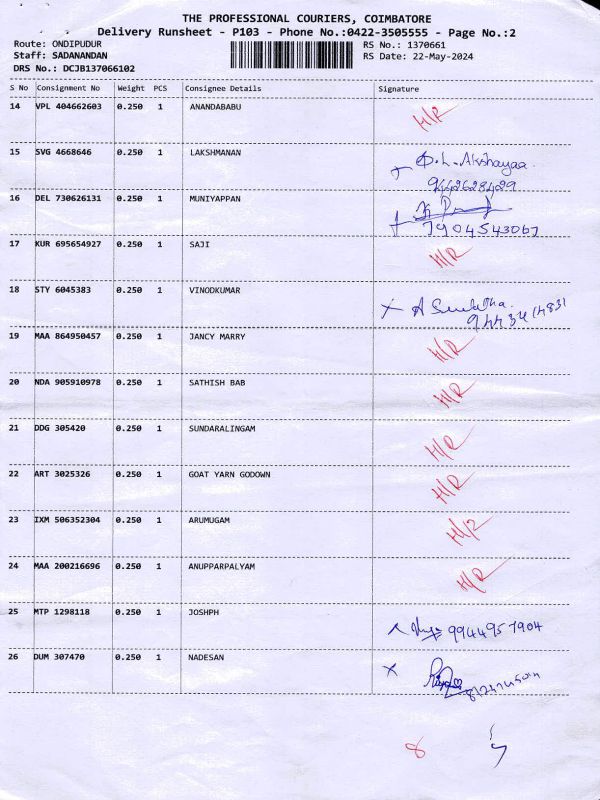 THE PROFESSIONAL COURIERS, COIMBATORE
Delivery Runsheet - P103 - Phone No.:0422-3505555 - Page No.:2
Route: ONDIPUDUR RS No.: 1370661
Staff: SADANANDAN RS Date: 22-May-2024
DRS No.: DCJB137066102
S No Consignment No Weight PCS Consignee Details Signature
14 VPL 404662603 0.250 1 ANANDABABU H/R
15 SVG 4668646 0.250 1 LAKSHMANAN D.L.Akshayaa
9442628429
16 DEL 730626131 0.250 1 MUNIYAPPAN
7904543067
17 KUR 695654927 0.250 1 SAJI H/R
18 STY 6045383 0.250 1 VINODKUMAR
19 MAA 864950457 0.250 1 JANCY MARRY H/R
20 NDA 905910978 0.250 1 SATHISH BAB H/R
21 DDG 305420 0.250 1 SUNDARALINGAM H/R
22 ART 3025326 0.250 1 GOAT YARN GODOWN H/R
23 IXM 506352304 0.250 1 ARUMUGAM H/R
24 MAA 200216696 0.250 1 ANUPPARPALYAM H/R
25 MTP 1298118 0.250 1 JOSHPH 9944957904
26 DUM 307470 0.250 1 NADESAN
8